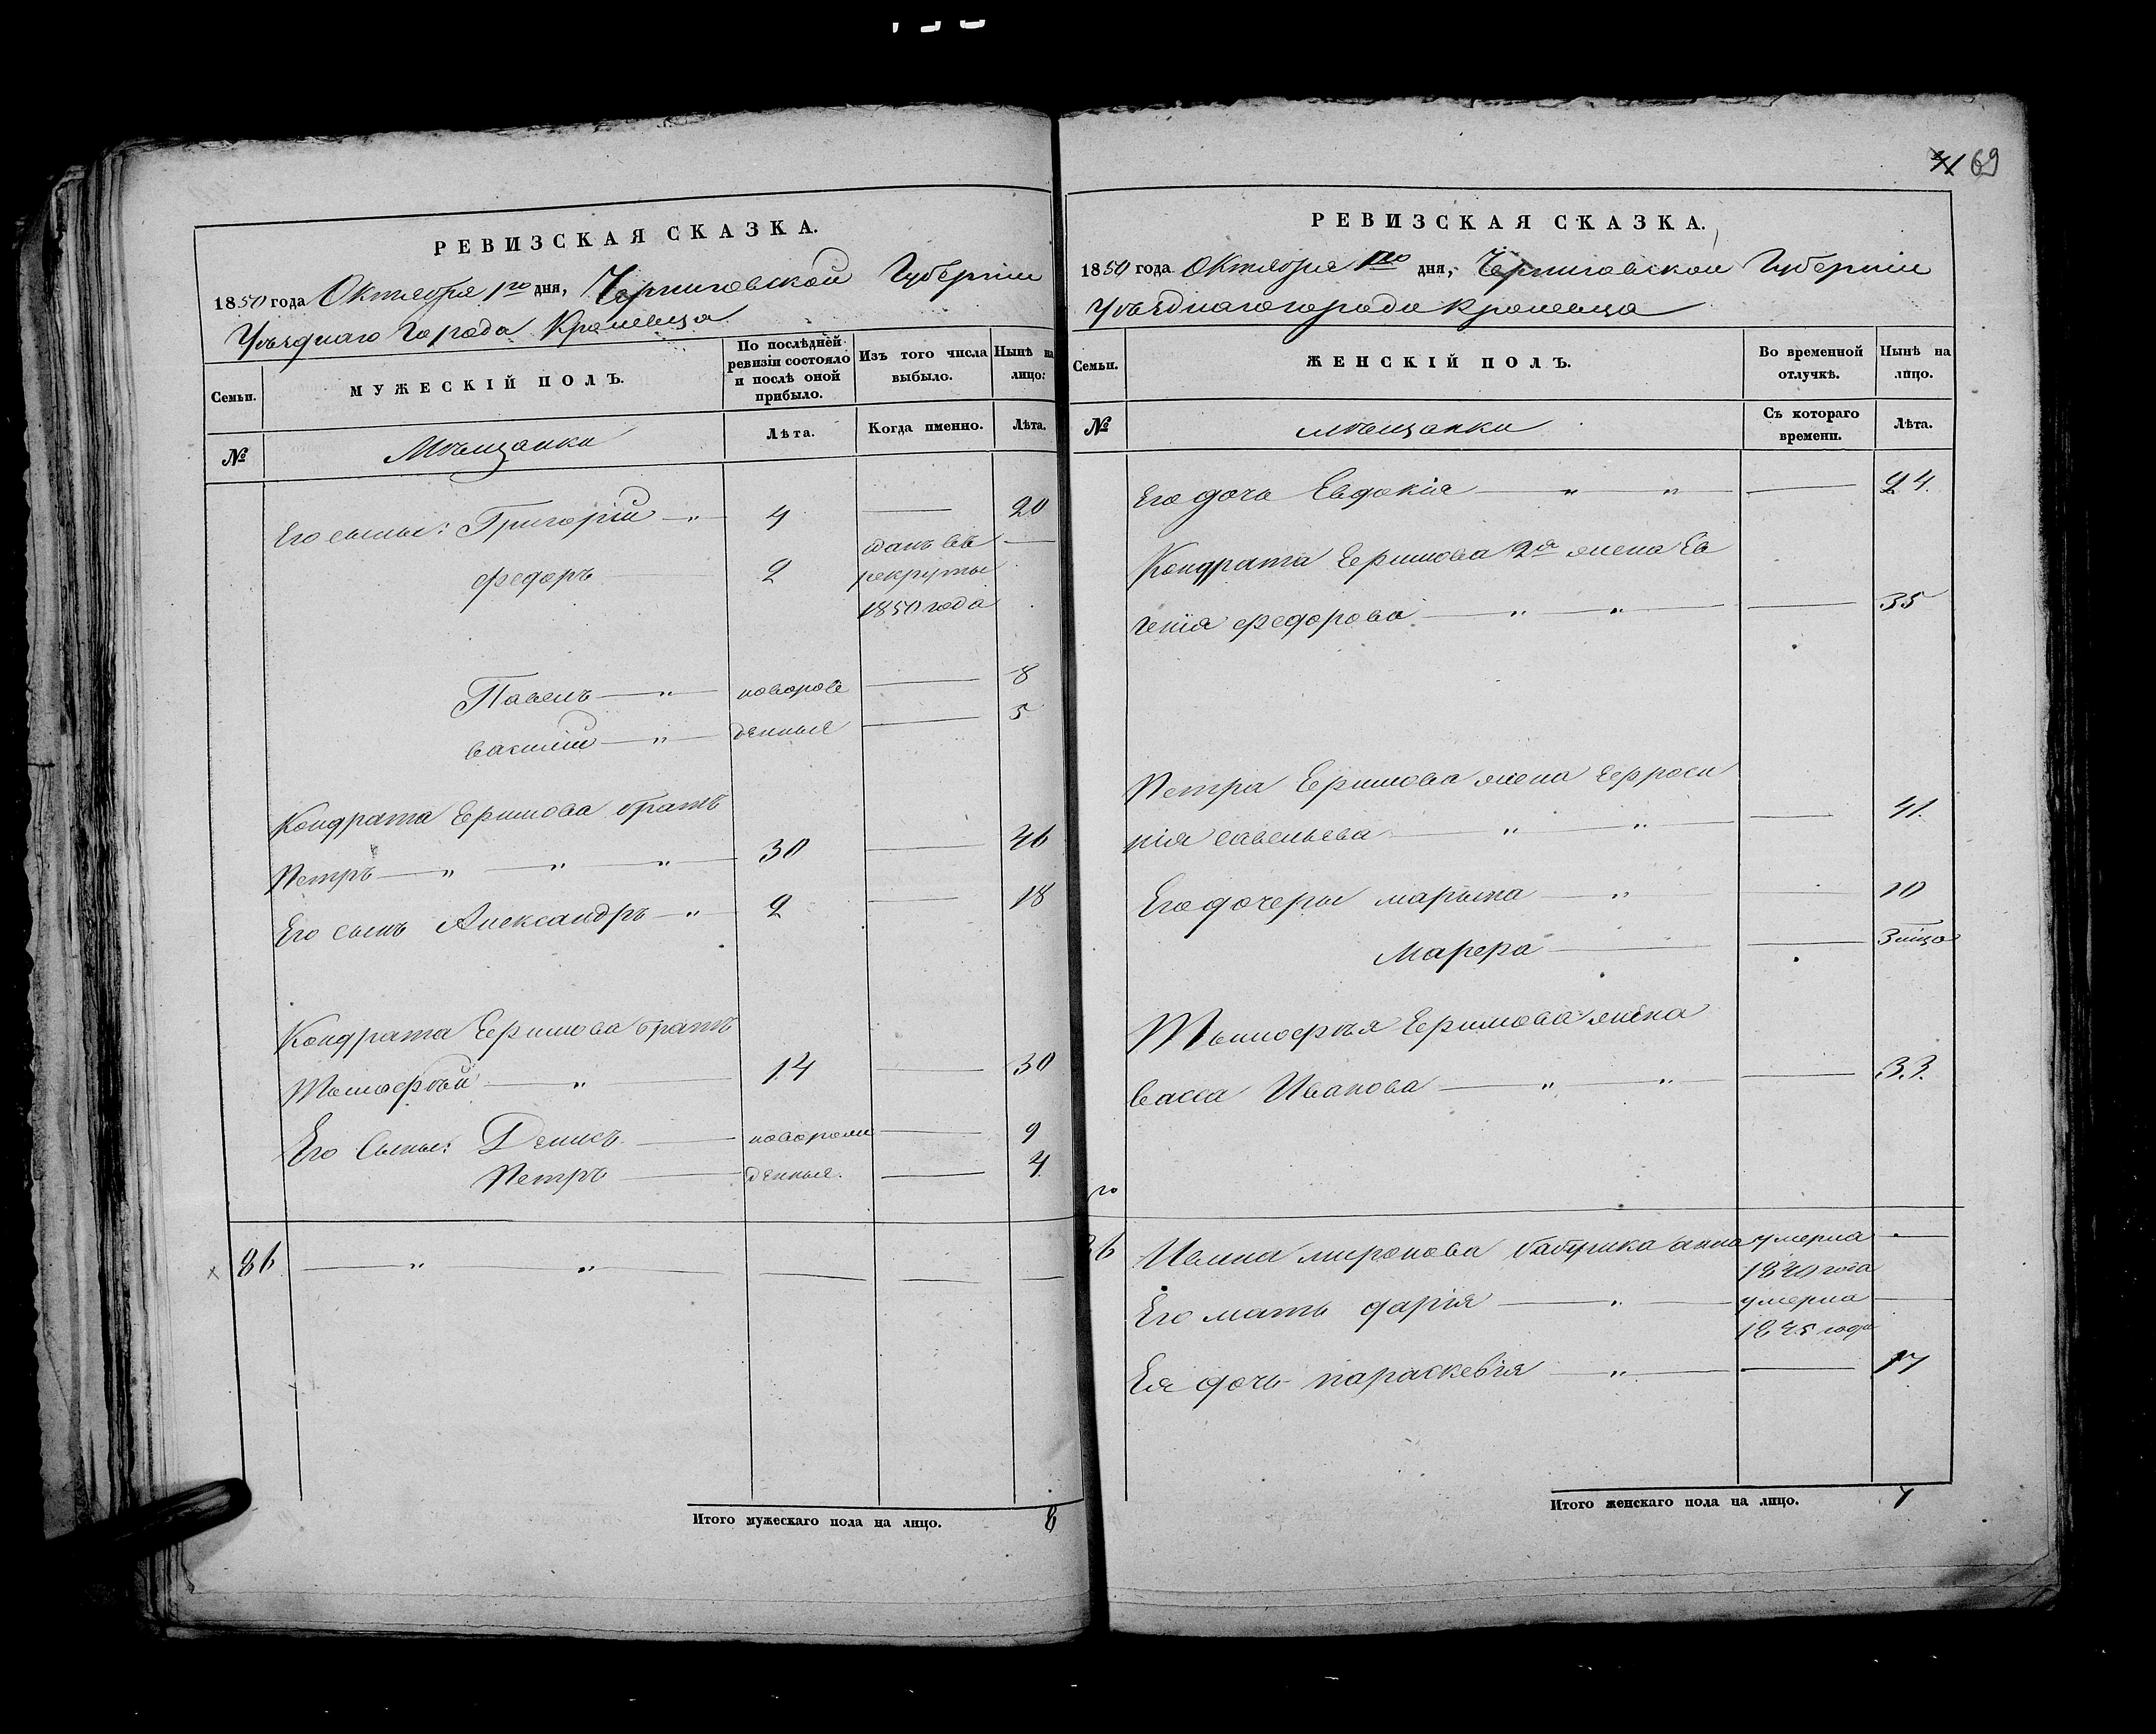 РЕВИЗСКАЯ СКАЗКА.
1850 года Октября 1го дня, Черниговской Губерніи
Уѣзднаго Города Кролевца
Семьи.
МУЖЕСКІЙ ПОЛЪ.
По послѣдней ревизіи состояло и послѣ оной прибыло.
Изъ того числа выбыло.
Нынѣ на лицо.
№
Мѣщанки
Лѣта.
Когда именно.
Лѣта.
Его сыны: Григорій — " 4 — 20
Федоръ — 2 —
рекруты
1850 года
Павелъ — " — 8
Василій — " — 5
Кондрата Ефимова братъ
Петръ — " — " — " — 30 — 46
Его сынъ Александръ — " — 2 — 18
Кондрата Ефимова братъ
Тимофѣй — " — 14 — 30
Его Сыны: Денисъ — новорож — 9
Петръ — денныя. — 4
86 — " — " — — —
Итого мужескаго пола на лицо. 8
69
РЕВИЗСКАЯ СКАЗКА.
1850 года Октября 1го дня, Черниговской Губерніи
Уѣзднаго города Кролевца
Семьи.
ЖЕНСКІЙ ПОЛЪ.
Во временной отлучкѣ.
Нынѣ на лицо.
№
мѣщанки
Съ котораго времени.
Лѣта.
Его дочь Евдокія — " — " — — 24.
Кондрата Ефимова 2я жена Ев
генія Федорова — " — " — — 35
Петра Ефимова жена Ефроси
нія Савельева — " — " — — 41.
Его дочери марына — " — — 10
Марфа — —
Тимофѣя Ефимова жена
Васса Иванова — " — " — — 33.
86 миронова бабушка анна умерла —
1840 года
Его мать дарія — " — умерла —
1845 года
Ея дочь параскевія — " — — 17
Итого женскаго пола на лицо. 7